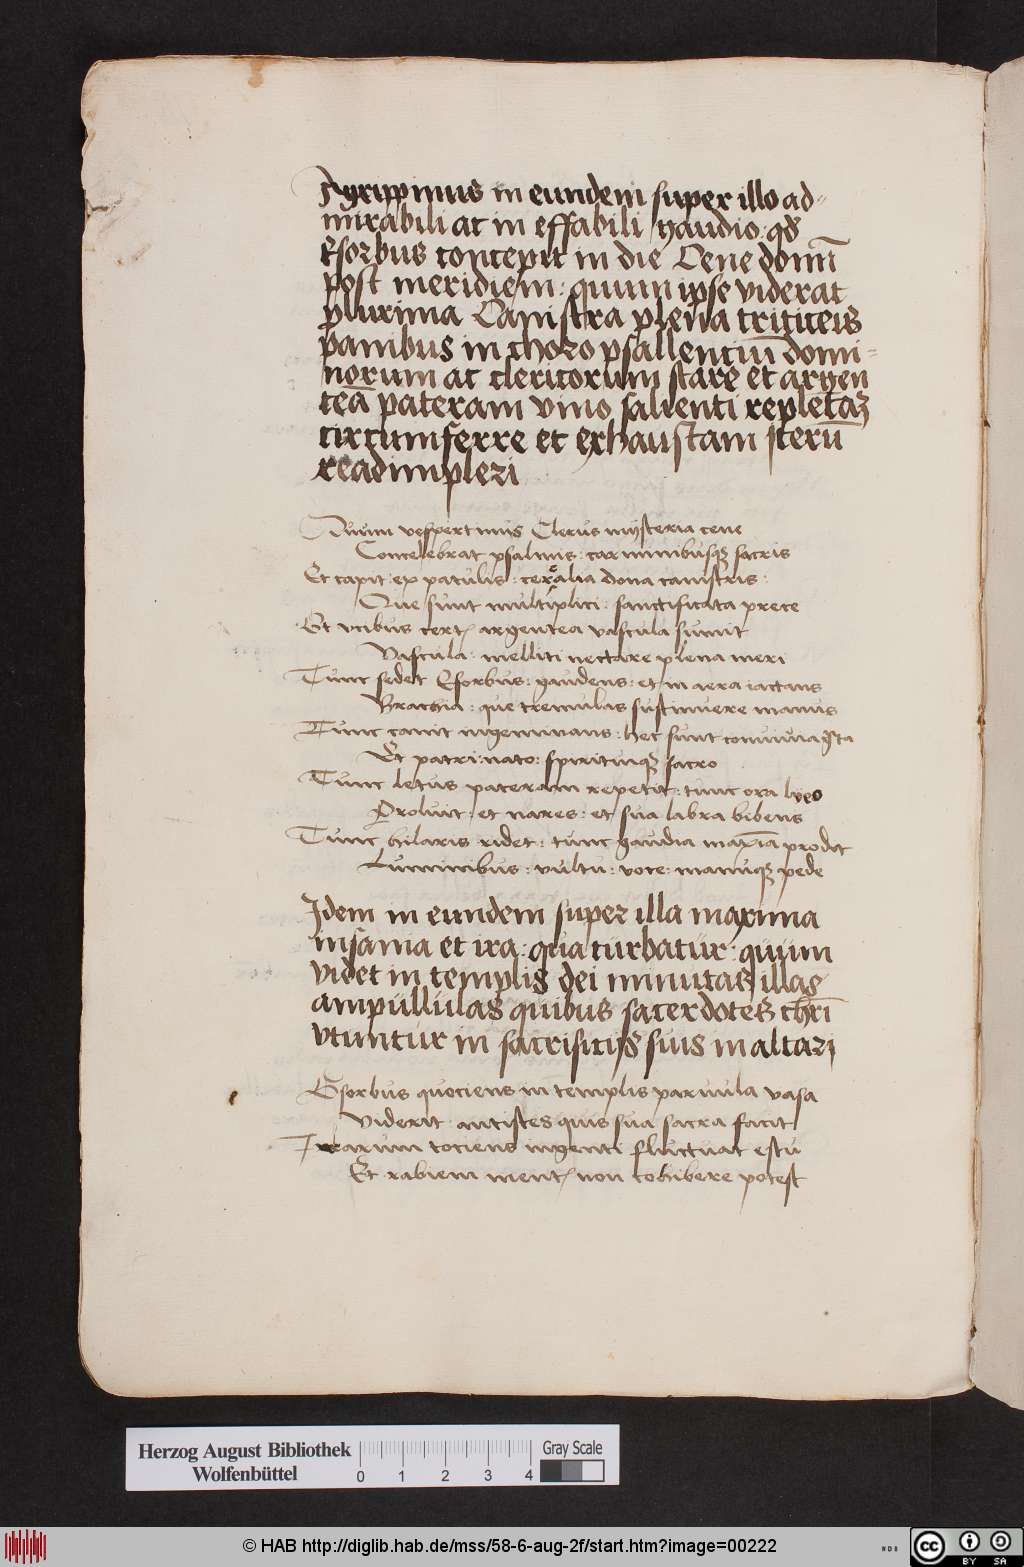 Agrippinus in eundem super illo ad-
mirabili ac in effabili gaudio qd̄
Esorbus concepit in die Cene domī
post meridiem: quum ipse viderat
plurima Canistra plena triticeis
panibus in choro psallentiū domi=
norum ac clericorum stare et argen
teā pateram vino salienti repletaꝫ
circumferre et exhaustam iterū
readimpleri
Quum vespertinus Clerus mysteria cene
Concelebrat psalmis: carminibusqꝫ sacris
Et capit ex patulis: cerealia dona canistris:
Que sunt multiplici: sanctificata prece
Et vcibus argentea vascula sumit
Vascula: melliti nectare plena meri
Tunc sedet Esorbus: gaudens: et in aera iactans
Brachia: que tremulas sustinuere manus
Tunc canit ingeminans: hec sunt conuiuia
Et patri: nato: spirituiqꝫ sacro
Tunc letus pateram repetit: tunc ora lyeo
Proluit: et nares: et sua labra bibens
Tunc hilaris ridet: tunc gaudia maxīa prodit
Luminibus: vultu: voce: manuqꝫ pede
Idem in eundem super illa maxima
insania et ira: qua turbatur: quum
videt in templis dei minutas illas
ampullulas quibus sacerdotes chrī
vtuntur in sacrificijs suis in altari
Esorbus quociens in templis paruula vasa
Viderit antistes quis sua sacra facit
Irarum tociens ingenti fluctuat estu
Et rabiem ment non cohibere potest
Herzog August Bibliothek
Wolfenbüttel
0 1 2 3 4
Gray Scale
© HAB http://diglib.hab.de/mss/58-6-aug-2f/start.htm?image=00222
cc BY SA